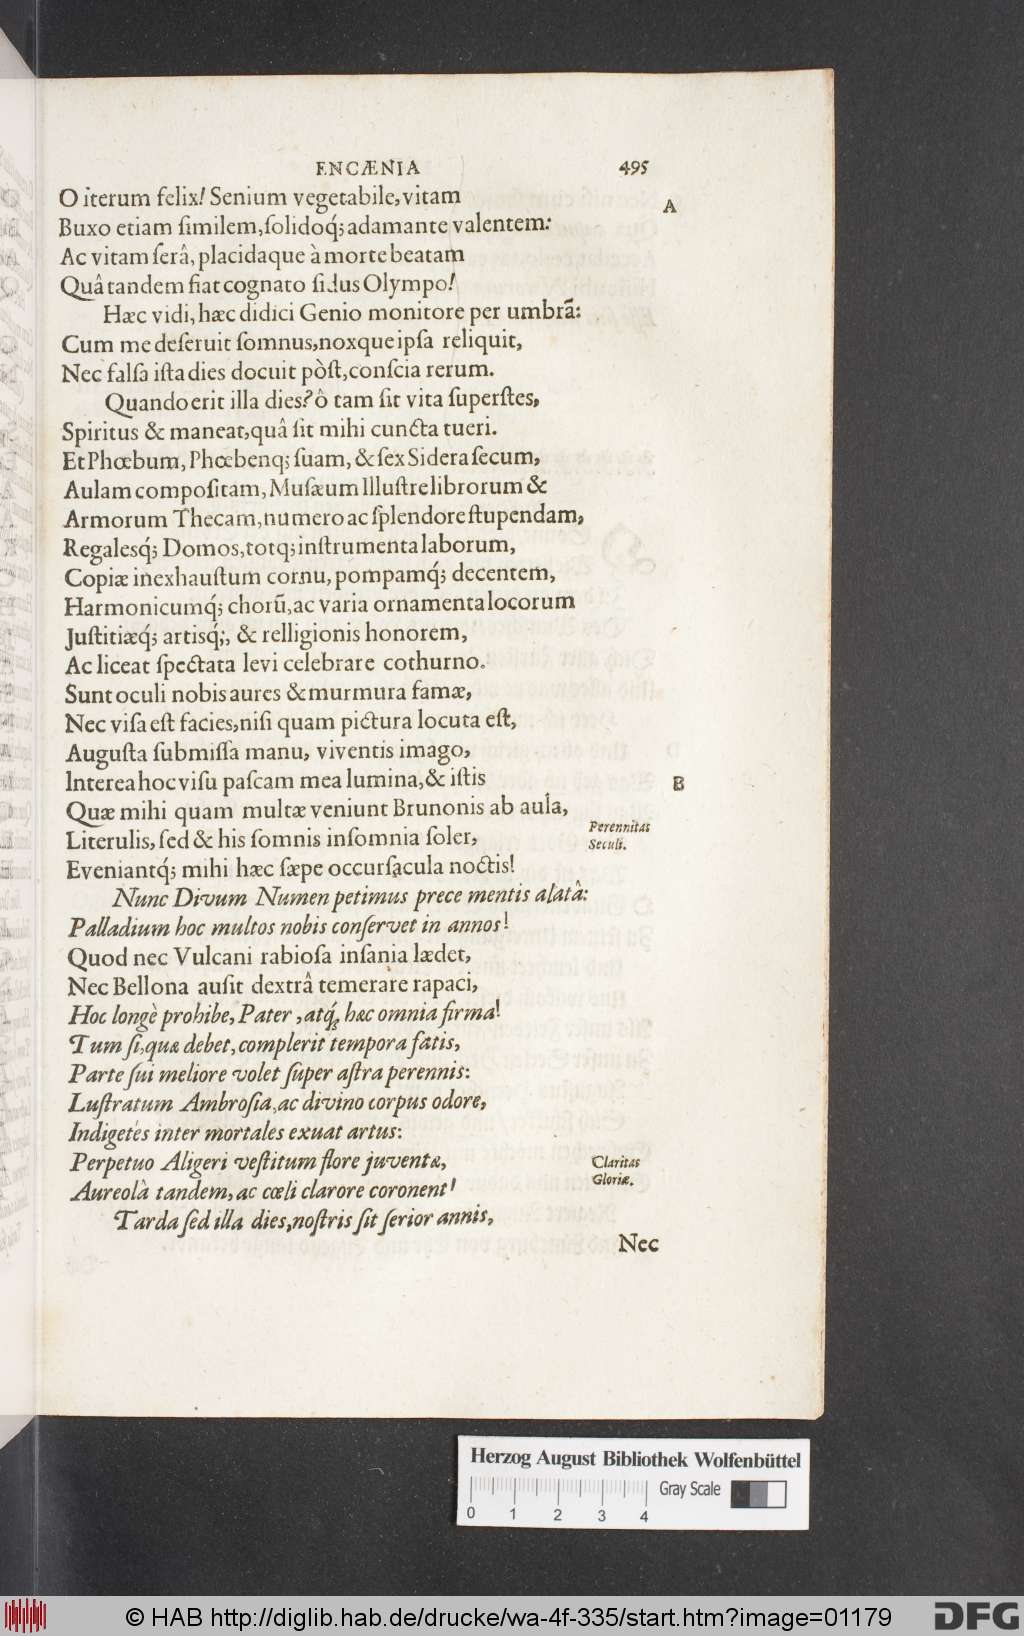 ENCÆNIA 495
O iterum felix! Senium vegetabile, vitam
A
Buxo etiam ſimilem, ſolidoq́; adamante valentem:
Ac vitam ſerâ, placidaque à morte beatam
Quâ tandem fiat cognato ſidus Olympo!
Hæc vidi, hæc didici Genio monitore per umbrã:
Cum me deſeruit ſomnus, noxque ipſa reliquit,
Nec falſa iſta dies docuit pòſt, conſcia rerum.
Quando erit illa dies? ô tam ſit vita ſuperſtes,
Spiritus & maneat, quâ ſit mihi cuncta tueri.
Et Phœbum, Phœbenq; ſuam, & ſex Sidera ſecum,
Aulam compoſitam, Muſæum Illuſtre librorum &
Armorum Thecam, numero ac ſplendore ſtupendam,
Regalesq́; Domos, totq; inſtrumenta laborum,
Copiæ inexhauſtum cornu, pompamq́; decentem,
Harmonicumq́; chorũ, ac varia ornamenta locorum
Juſtitiæq́; artisq́;, & relligionis honorem,
Ac liceat ſpectata levi celebrare cothurno.
Sunt oculi nobis aures & murmura famæ,
Nec viſa eſt facies, niſi quam pictura locuta eſt,
Auguſta ſubmiſſa manu, viventis imago,
Interea hoc viſu paſcam mea lumina, & iſtis
B
Quæ mihi quam multæ veniunt Brunonis ab aula,
Perennitas
Seculi.
Literulis, ſed & his ſomnis inſomnia ſoler,
Eveniantq́; mihi hæc ſæpe occurſacula noctis!
Nunc Divum Numen petimus prece mentis alatâ:
Palladium hoc multos nobis conſervet in annos!
Quod nec Vulcani rabioſa inſania lædet,
Nec Bellona auſit dextrâ temerare rapaci,
Hoc longè prohibe, Pater, atq́; hæc omnia firma!
Tum ſi, quæ debet, complerit tempora fatis,
Parte ſui meliore volet ſuper aſtra perennis:
Luſtratum Ambroſia, ac divino corpus odore,
Indigetes inter mortales exuat artus:
Perpetuo Aligeri veſtitum flore juventæ,
Claritas
Gloriæ.
Aureolà tandem, ac cœli clarore coronent!
Tarda ſed illa dies, noſtris ſit ſerior annis,
Nec
Herzog August Bibliothek Wolfenbüttel
Gray Scale
0 1 2 3 4
© HAB http://diglib.hab.de/drucke/wa-4f-335/start.htm?image=01179
DFG